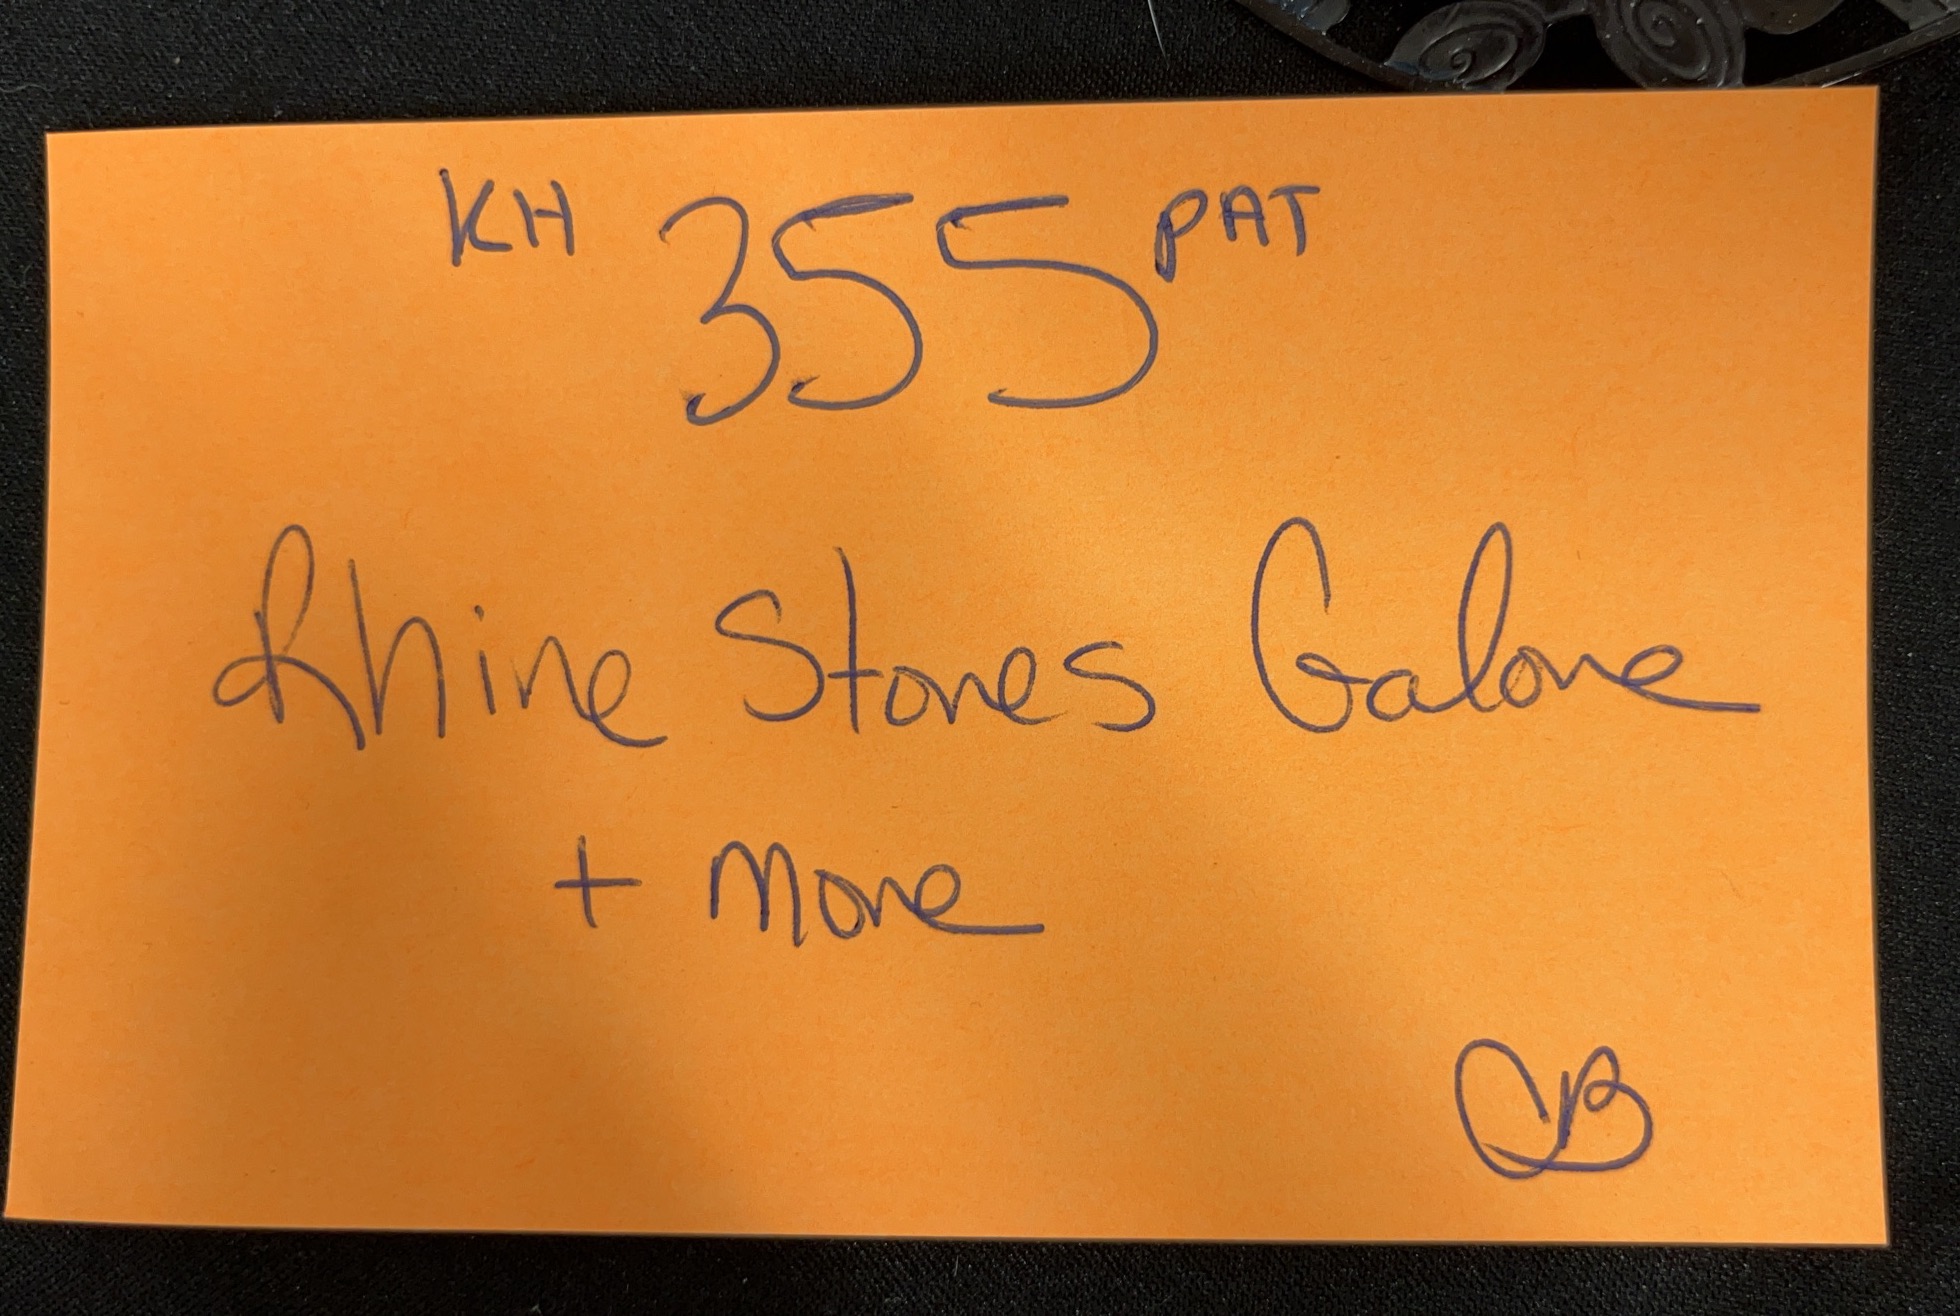 KH 355 PAT
Rhine Stones Galore
+ More
CB